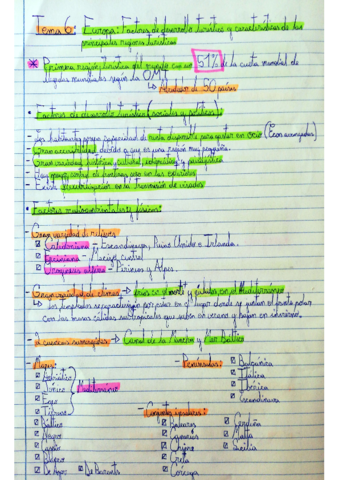 Tema 6: Europa: Factores de desarrollo turístico y características de las
principales regiones turísticas
* Primera región turística del mundo con un 51% de la cuota mundial de
llegadas mundiales según la OMT
↳ Alrededor de 50 países
• Factores de desarrollo turístico (sociales y políticos):
- Los habitantes poseen capacidad de renta disponible para gastar en ocio (Econ avanzadas)
- Gran accesibilidad, debido a que es una región muy pequeña.
- Gran variedad histórica, cultural, lingüística y paisajística
- Hay mayor control de fronteras, sino en las exteriores
- Existe
• Factores medioambientales y físicos:
- Gran variedad de relieves
☑ Caledoniana - Escandinavia, Reino Unido e Irlanda.
☑ Herciniana - Macizo central
☑ Orogenia alpina → Pirineos y Alpes.
- Gran variedad de climas → fríos en el norte y cálidos en el Mediterráneo
↳ Las temporales se producen por estar en el lugar donde se juntan el frente polar
con las masas cálidas subtropicales que suben en verano y bajan en invierno.
- 2 cuencas sumergidas → Canal de la Mancha y Mar Báltico
- Mares:
☑ Adriático
☑ Jónico
☑ Egeo
☑ Tirreno
Mediterráneo
☑ Báltico
☑ Negro
☑ Caspio
☑ Blanco
☑ De Azov
☑ De Barents
- Penínsulas:
☑ Balcánica
☑ Itálica
☑ Ibérica
☑ Escandinava
- Conjuntos insulares:
☑ Baleares
☑ Canarias
☑ Chipre
☑ Creta
☑ Córcega
☑ Cerdeña
☑ Malta
☑ Sicilia